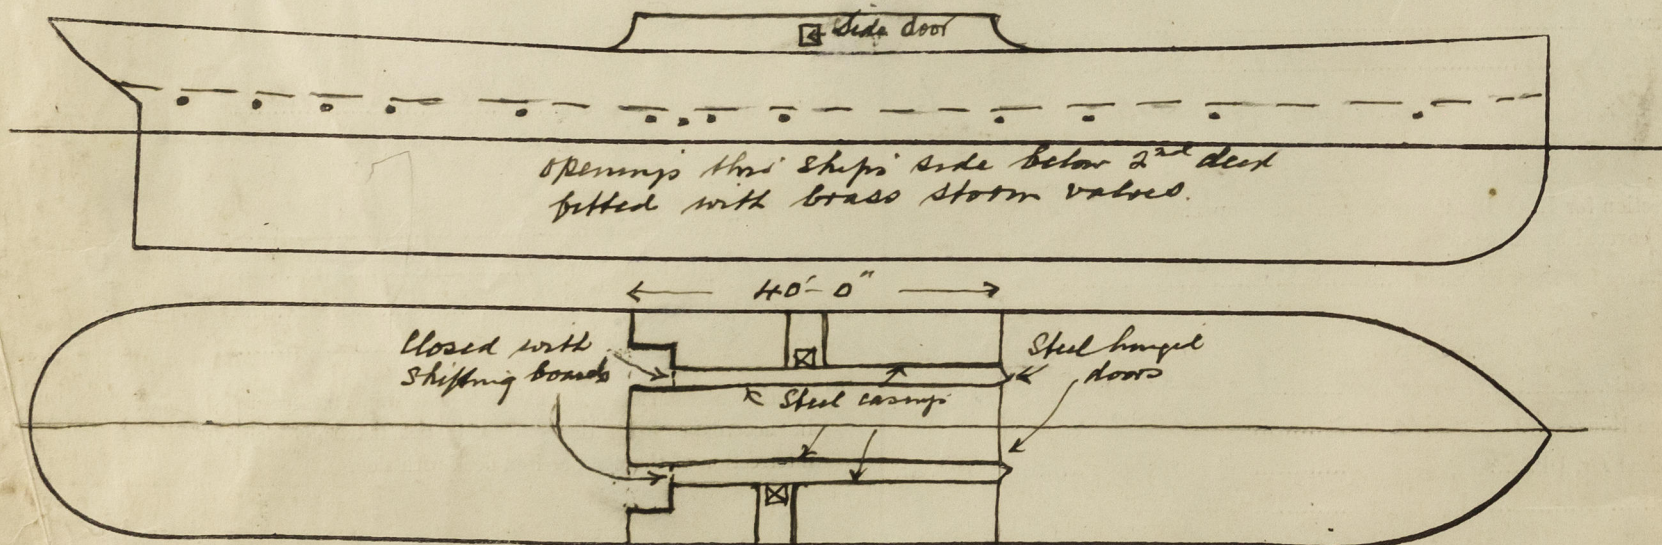 Side door
openings thro' ship's side below 2nd deck
fitted with brass storm valves.
40'-0"
Closed with
shifting boards
Steel hinged
doors
Steel casings